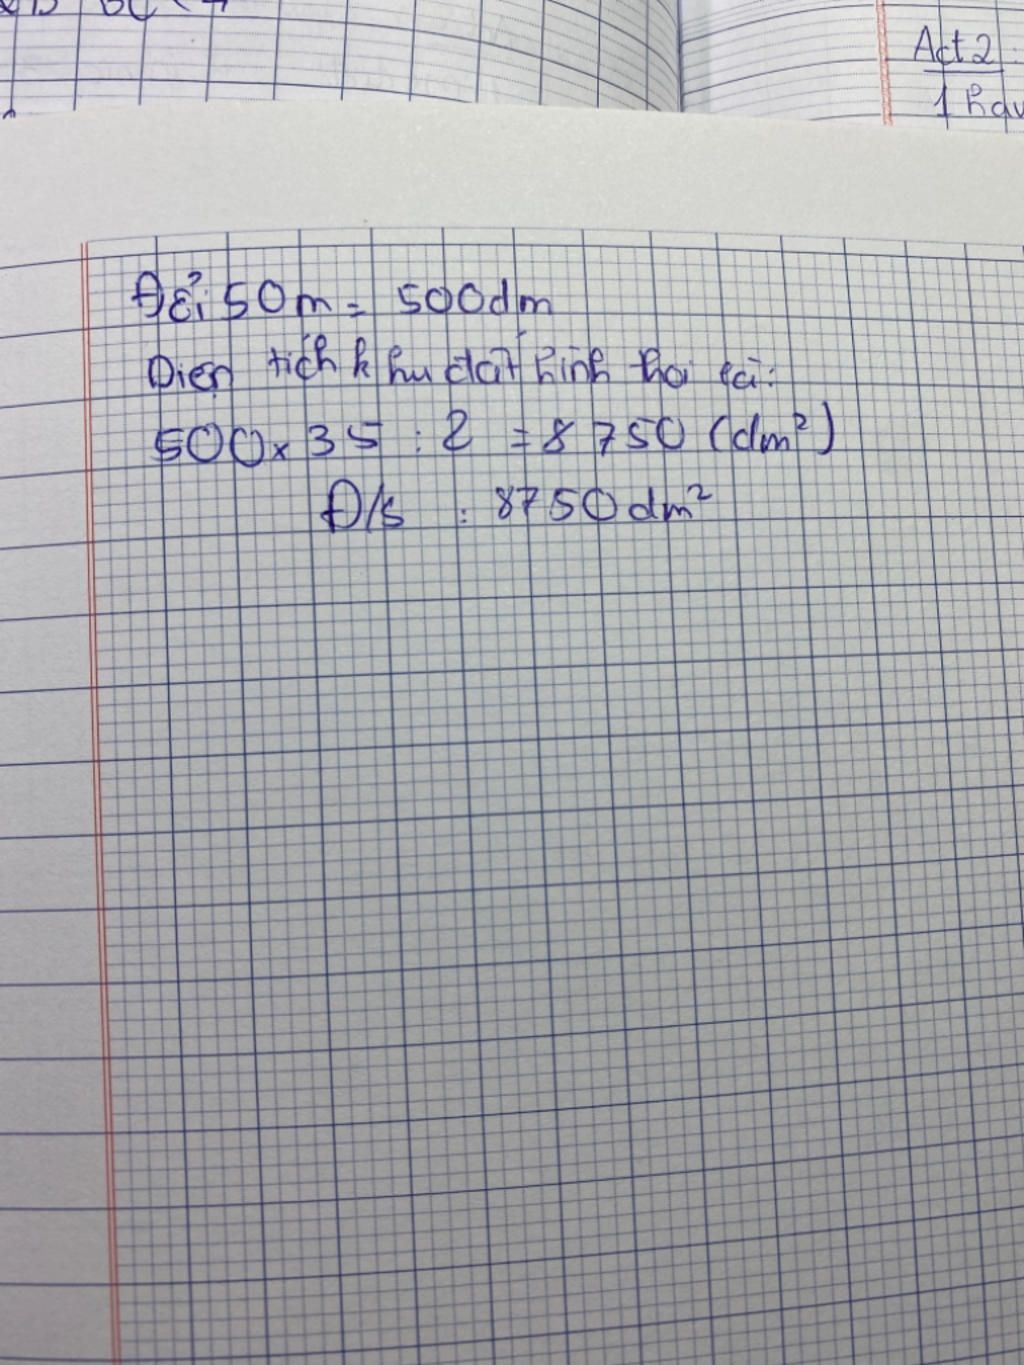 Act 2:
1 hav
Đổi 50m = 500dm
Diện tích khu đất hình thoi là:
500 x 35 : 2 = 8 750 (dm²)
Đ/s : 8750 dm²